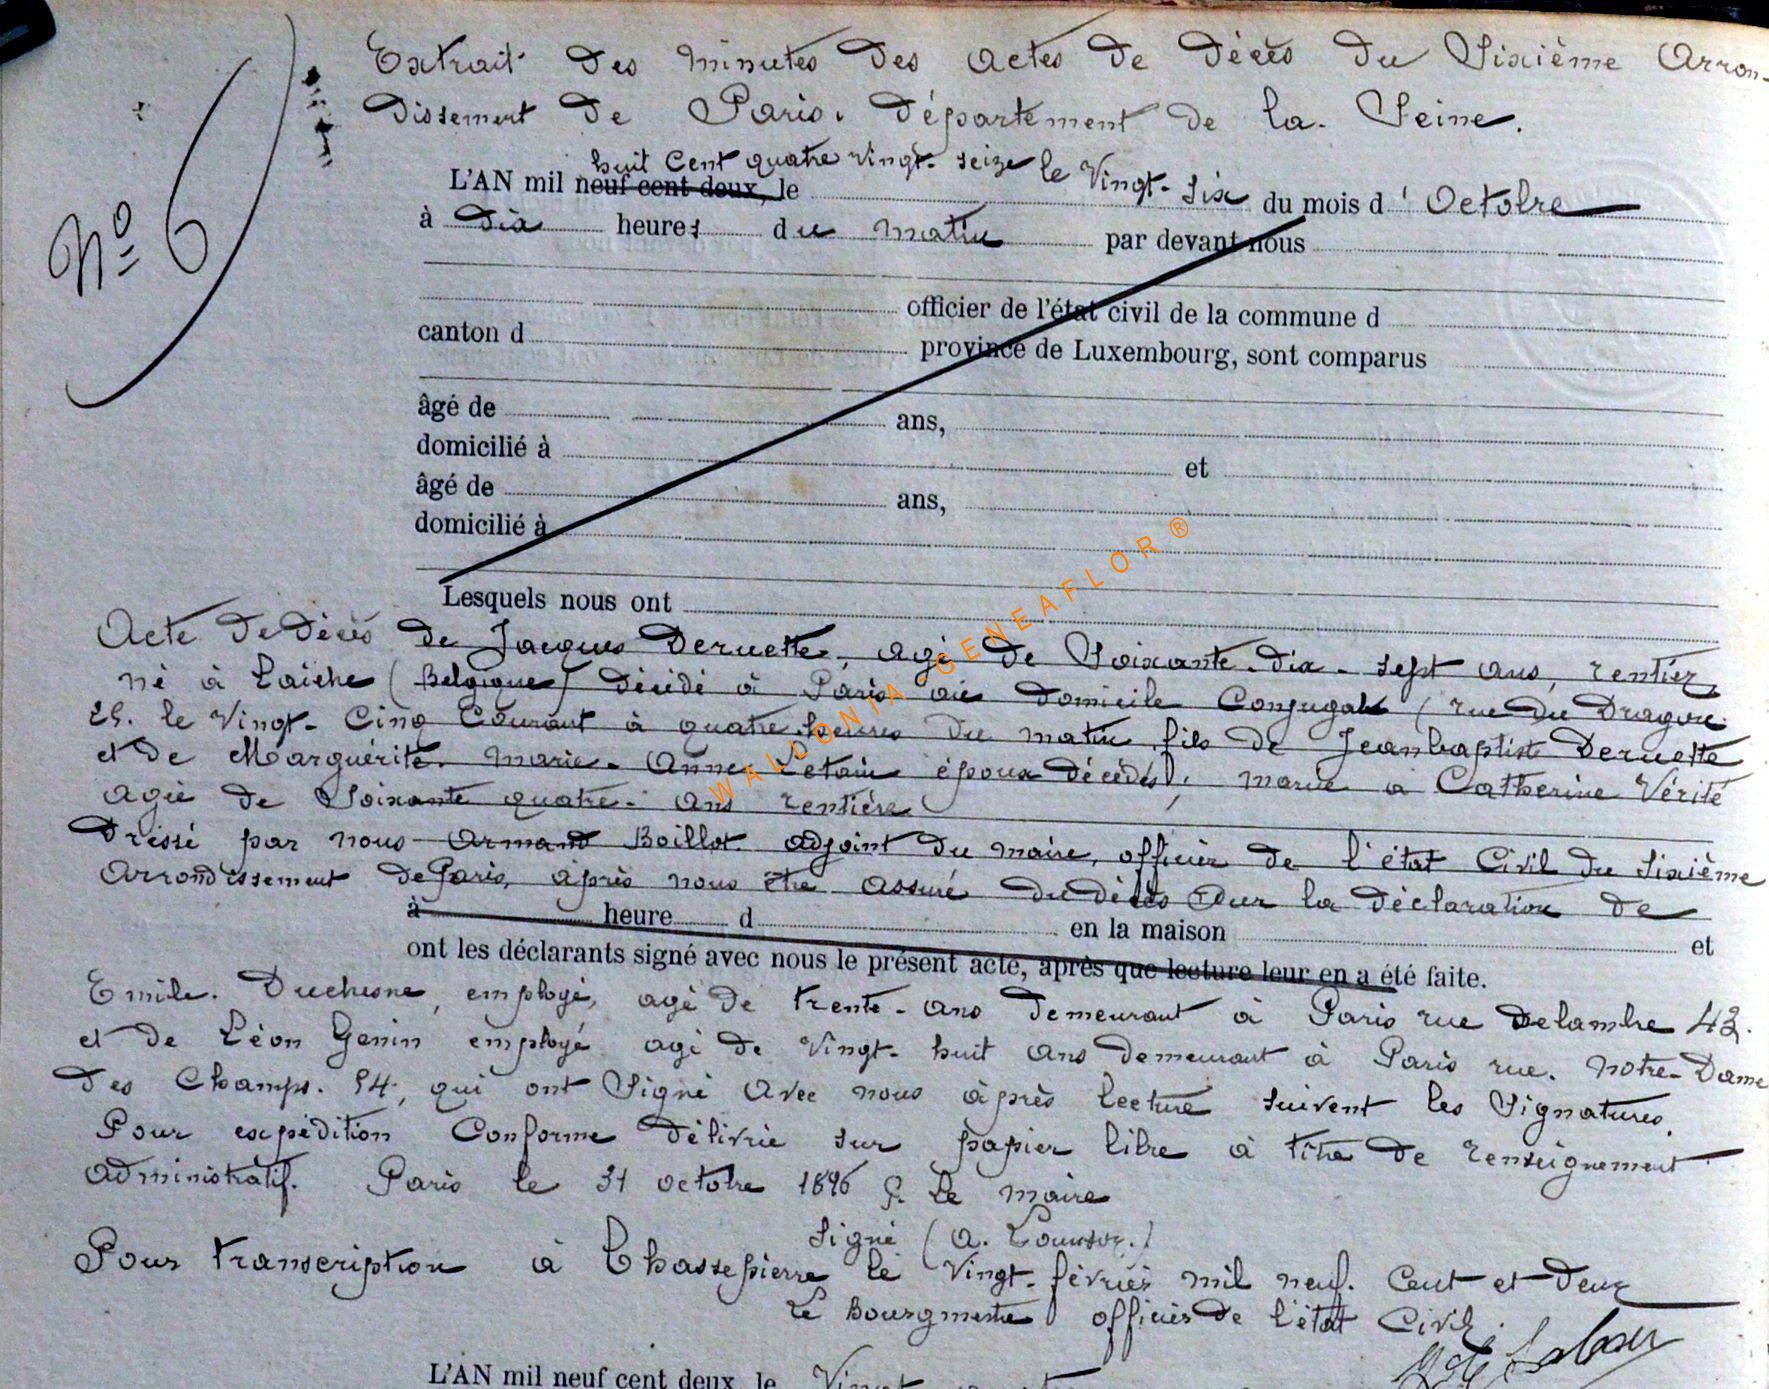 Extrait des minutes des actes de décès du Sixième Arron-
dissement de Paris. département de la Seine.
N° 6
huit Cent quatre vingt-seize le Vingt-Six
L'AN mil neuf cent deux, le du mois d' Octobre
à dix heures du matin par devant nous
officier de l'état civil de la commune d
canton d province de Luxembourg, sont comparus
âgé de ans,
domicilié à et
âgé de ans,
domicilié à
Lesquels nous ont
Acte de décès de Jacques Deruette, agé de Soixante-dix-sept ans, rentier,
né à Laiche (Belgique) décédé à Paris au domicile Conjugal (rue du Dragon
25. le Vingt-Cinq Courant à quatre heures du matin, fils de Jean baptiste Deruette
et de Marguérite-Marie-Anne époux décédés; marié a Catherine Vérité
agée de Soixante quatre-ans rentière
Dressé par nous Armand Boillot adjoint du maire, officier de l'état Civil du Sixième
Arrondissement de Paris, après nous être assuré du décès Sur la déclaration de
à heure d en la maison et
ont les déclarants signé avec nous le présent acte, après que lecture leur en a été faite.
Emile. Duchesne, employé, agé de trente-ans demeurant à Paris rue Delambre 43.
et de Léon Genin employé agé de Vingt-huit ans demeurant à Paris rue. Notre-Dame
des Champs. 54, qui ont Signé avec nous àprès lecture suivent les Signatures.
Pour expédition Conforme délivrée sur papier libre à titre de renseignement
administratif. Paris le 31 octobre 1896 p. le maire
Signé (A.
Pour transcription à Chassepierre le Vingt-février mil neuf. Cent et deux
Le Bourgmestre officier de l'état Civil.
L'AN mil neuf cent deux, le Vingt
WALLONIA GENEAFLOR ®